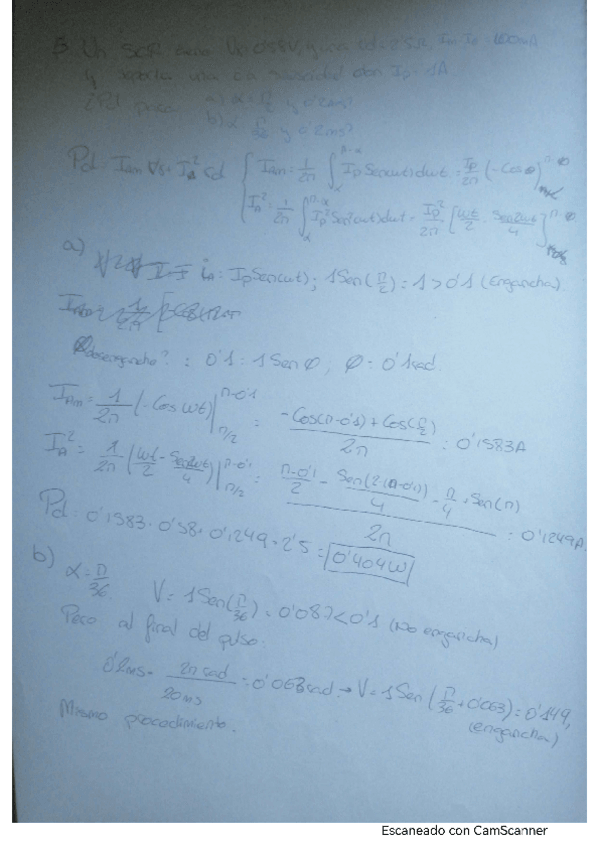 3. Un SCR
y una sinusoidal con Ip = 1A
a) α = π/2 y 0'2ms?
b) α π/36 y 0'2ms?
Pd = IAm Vs + IA² rd { IAm = 1/2π ∫α^π-α Ip Sen(wt) dwt = Ip/2π (-Cos φ)
IA² = 1/2π ∫α^π-α Ip² Sen²(wt) dwt = Ip²/2π [wt/2 - Sen2wt/4]
a) iA = Ip Sen(wt); 1Sen(π/2) = 1 > 0'1 (Engancha)
φdesengancha? : 0'1 = 1 Sen φ; φ = 0'1rad.
IAm = 1/2π (-Cos wt)|π/2^π-0'1 = -Cos(π-0'1) + Cos(π/2) / 2π = 0'1583A
IA² = 1/2π (wt/2 - Sen2wt/4)|π/2^π-0'1 = π-0'1/2 - Sen(2(π-0'1))/4 - π/4 + Sen(π) / 2π : 0'1249A
Pd = 0'1583 · 0'58 + 0'1249 · 2'5 = 0'404W
b) α = π/36. V = 1Sen(π/36) = 0'087 < 0'1 (No engancha)
Pero al final del pulso.
0'2ms · 2π rad/20ms = 0'063rad → V = 1Sen(π/36 + 0'063) = 0'149,
(engancha)
Mismo procedimiento.
Escaneado con CamScanner